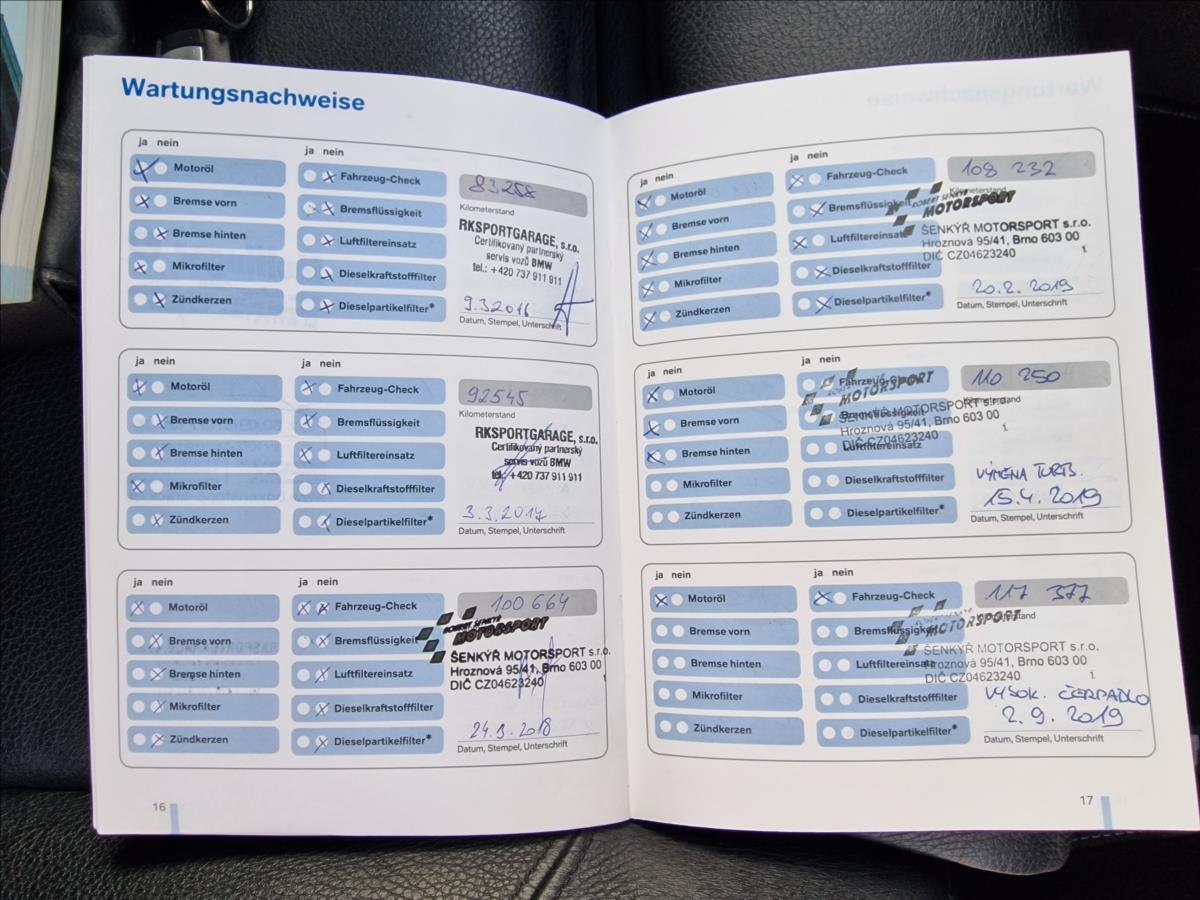 Wartungsnachweise
ja nein
ja nein
Motoröl
Bremse vorn
Bremse hinten
Mikrofilter
Zündkerzen
Fahrzeug-Check
Bremsflüssigkeit
Luftfiltereinsatz
Dieselkraftstofffilter
Dieselpartikelfilter*
83258
Kilometerstand
RKSPORTGARAGE, s.r.o.
Certifikovaný partnerský
servis vozů BMW
tel.: +420 737 911 911
9.3.2016
Datum, Stempel, Unterschrift
ja nein
ja nein
Motoröl
Bremse vorn
Bremse hinten
Mikrofilter
Zündkerzen
Fahrzeug-Check
Bremsflüssigkeit
Luftfiltereinsatz
Dieselkraftstofffilter
Dieselpartikelfilter*
92545
Kilometerstand
RKSPORTGARAGE, s.r.o.
Certifikovaný partnerský
servis vozů BMW
tel.: +420 737 911 911
3.3.2017
Datum, Stempel, Unterschrift
ja nein
ja nein
Motoröl
Bremse vorn
Bremse hinten
Mikrofilter
Zündkerzen
Fahrzeug-Check
Bremsflüssigkeit
Luftfiltereinsatz
Dieselkraftstofffilter
Dieselpartikelfilter*
100 664
ROBERT SENKÝŘ
MOTORSPORT
ŠENKÝŘ MOTORSPORT s.r.o.
Hroznová 95/41, Brno 603 00
DIČ CZ04623240
1
Datum, Stempel, Unterschrift
16
ja nein
ja nein
Motoröl
Bremse vorn
Bremse hinten
Mikrofilter
Zündkerzen
Fahrzeug-Check
Bremsflüssigkeit
Luftfiltereinsatz
Dieselkraftstofffilter
Dieselpartikelfilter*
108 232
Kilometerstand
ROBERT SENKÝŘ
MOTORSPORT
ŠENKÝŘ MOTORSPORT s.r.o.
Hroznová 95/41, Brno 603 00
DIČ CZ04623240
1
20.2. 2019
Datum, Stempel, Unterschrift
ja nein
ja nein
Motoröl
Bremse vorn
Bremse hinten
Mikrofilter
Zündkerzen
Fahrzeug-Check
Bremsflüssigkeit
Luftfiltereinsatz
Dieselkraftstofffilter
Dieselpartikelfilter*
110 250
Kilometerstand
MOTORSPORT
ŠENKÝŘ MOTORSPORT s.r.o.
Hroznová 95/41, Brno 603 00
DIČ CZ04623240
1
VÝMĚNA TURB.
15.4. 2019
Datum, Stempel, Unterschrift
ja nein
ja nein
Motoröl
Bremse vorn
Bremse hinten
Mikrofilter
Zündkerzen
Fahrzeug-Check
Bremsflüssigkeit
Luftfiltereinsatz
Dieselkraftstofffilter
Dieselpartikelfilter*
117 377
Kilometerstand
MOTORSPORT
ŠENKÝŘ MOTORSPORT s.r.o.
Hroznová 95/41, Brno 603 00
DIČ CZ04623240
1
VYSOK. ČERPADLO
2.9. 2019
Datum, Stempel, Unterschrift
17